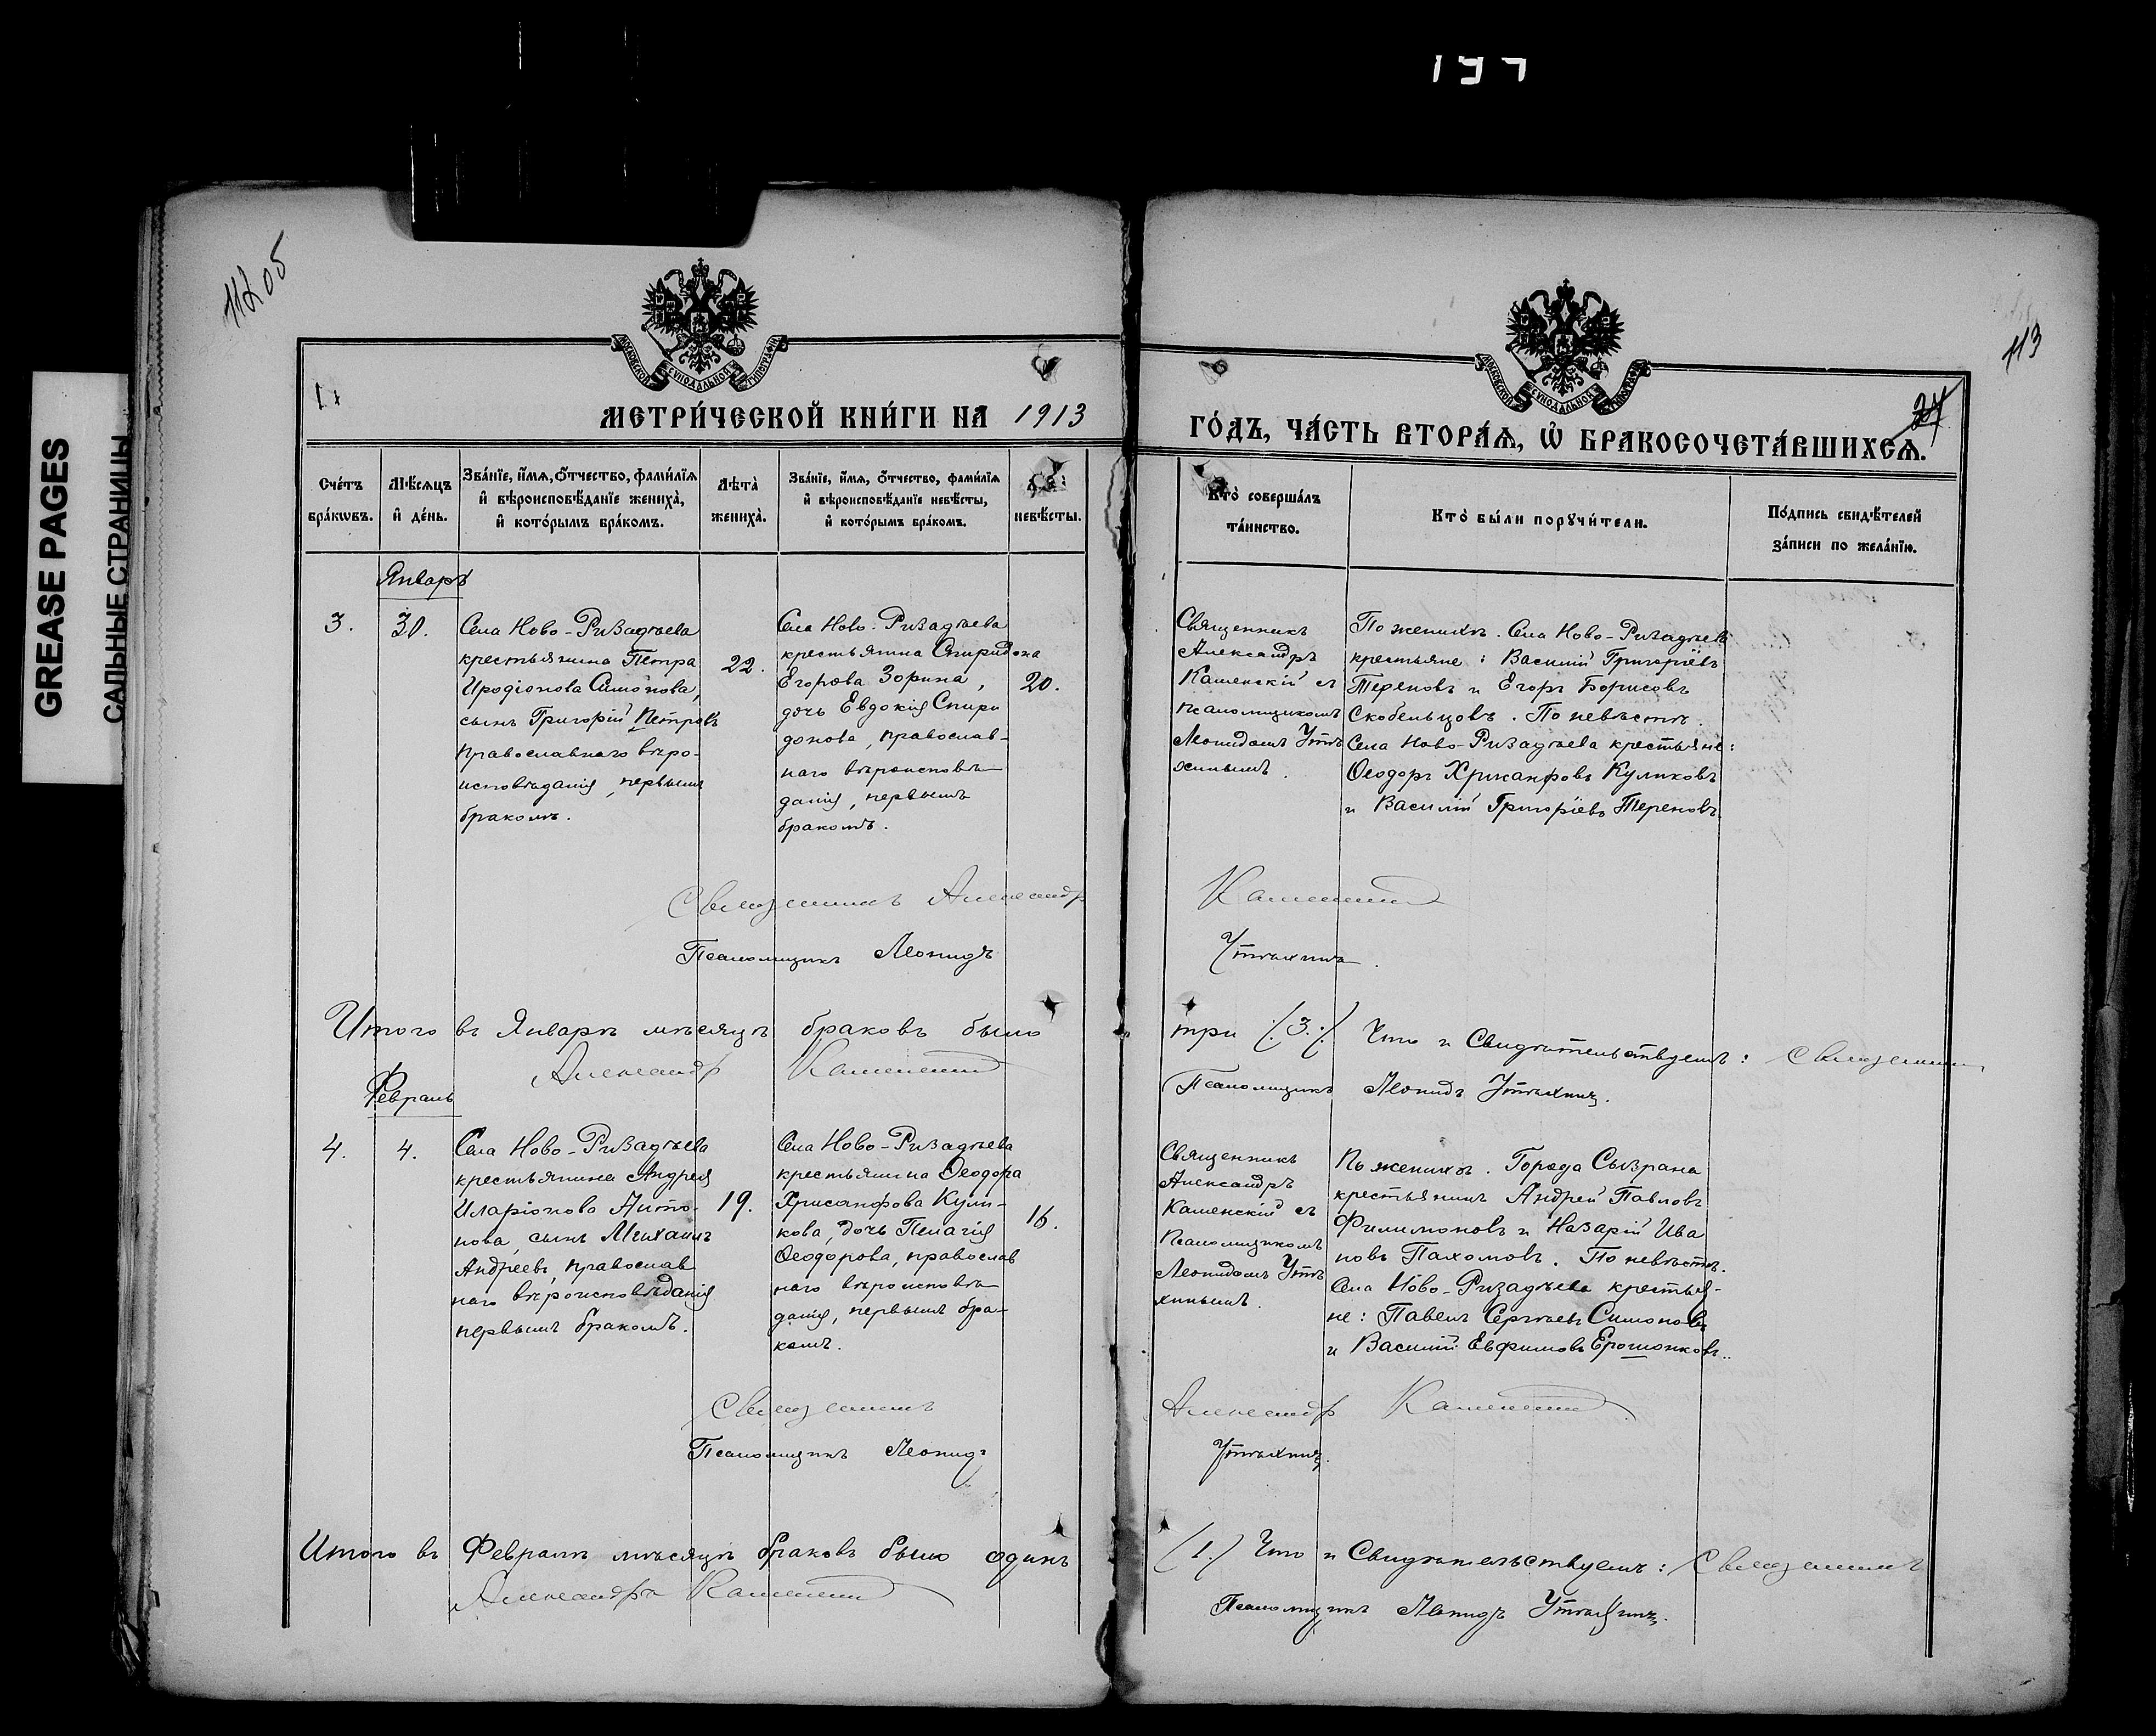 GREASE PAGES
САЛЬНЫЕ СТРАНИЦЫ
113
МЕТРИ́ЧЕСКОЙ КНИ́ГИ НА 1913
ГО́ДЪ, ЧА́СТЬ ВТОРА́Ѧ, Ѡ҆ БРАКОСОЧЕТА́ВШИХСѦ.
МОСКОВСКОЙ СѴНОДАЛЬНОЙ ТИПОГРАФІИ
МОСКОВСКОЙ СѴНОДАЛЬНОЙ ТИПОГРАФІИ
Сче́тъ бра́кωвъ.
Мѣ́сяцъ и҆ де́нь.
Зва́нїе, и҆́мя, ѻ҆́тчество, фами́лїя и҆ вѣроисповѣ́данїе жениха̀, и҆ кото́рымъ бра́комъ.
Лѣта̀ жениха̀.
Зва́нїе, и҆́мя, ѻ҆́тчество, фами́лїя и҆ вѣроисповѣ́данїе невѣ́сты, и҆ кото́рымъ бра́комъ.
невѣ́сты.
Кто̀ соверша́лъ та́инство.
Кто̀ бы́ли порꙋчи́тели.
По́дпись свидѣ́телей за́писи по жела́нїю.
Январь
3.
30.
Села Ново-Ризадѣева
крестьянина Петра
Иродіонова Симонова,
сынъ Григорій Петровъ
православнаго вѣро-
исповѣданія, первымъ
бракомъ.
22.
Села Ново-Ризадѣева
крестьянина Спиридона
Егорова Зорина,
дочь Евдокія Спири
донова, православ-
наго вѣроисповѣ-
данія, первымъ
бракомъ.
20.
Священникъ
Александръ
Каменскій съ
псаломщикомъ
Леонидомъ Утѣ
хинымъ.
По женихѣ. Села Ново-Ризадѣева
крестьяне: Василій Григоріевъ
Тереновъ и Егоръ Борисовъ
Скобельцовъ. По невѣстѣ.
Села Ново-Ризадѣева крестьяне:
Ѳеодоръ Хрисанфовъ Куликовъ
и Василій Григоріевъ Тереновъ.
Священникъ Александръ Каменскій
Псаломщикъ Леонидъ Утѣхинъ.
Итого въ Январѣ мѣсяцѣ браковъ было три (3.) Что и Свидѣтельствуемъ: Священникъ
Александръ Каменскій
Псаломщикъ Леонидъ Утѣхинъ.
Февраль
4.
4.
Села Ново-Ризадѣева
крестьянина Андрея
Иларіонова Анто-
нова, сынъ Михаилъ
Андреевъ, православ
наго вѣроисповѣданія
первымъ бракомъ.
19.
Села Ново-Ризадѣева
крестьянина Ѳеодора
Хрисанфова Кули-
кова, дочь Пелагія
Ѳеодорова, православ
наго вѣроисповѣ-
данія, первымъ бра-
комъ.
16.
Священникъ
Александръ
Каменскій съ
Псаломщикомъ
Леонидомъ Утѣ
хинымъ.
По женихѣ. Города Сызрана
крестьянинъ Андрей Павловъ
Филимоновъ и Назарій Ива
новъ Пахомовъ. По невѣстѣ.
Села Ново-Ризадѣева крестья-
не: Павелъ Сергѣевъ Симоновъ
и Василій Евфимовъ Ерошонковъ.
Священникъ Александръ Каменскій
Псаломщикъ Леонидъ Утѣхинъ.
Итого въ Февралѣ мѣсяцѣ браковъ было одинъ (1.) Что и Свидѣтельствуемъ: Священникъ
Александръ Каменскій
Псаломщикъ Леонидъ Утѣхинъ.